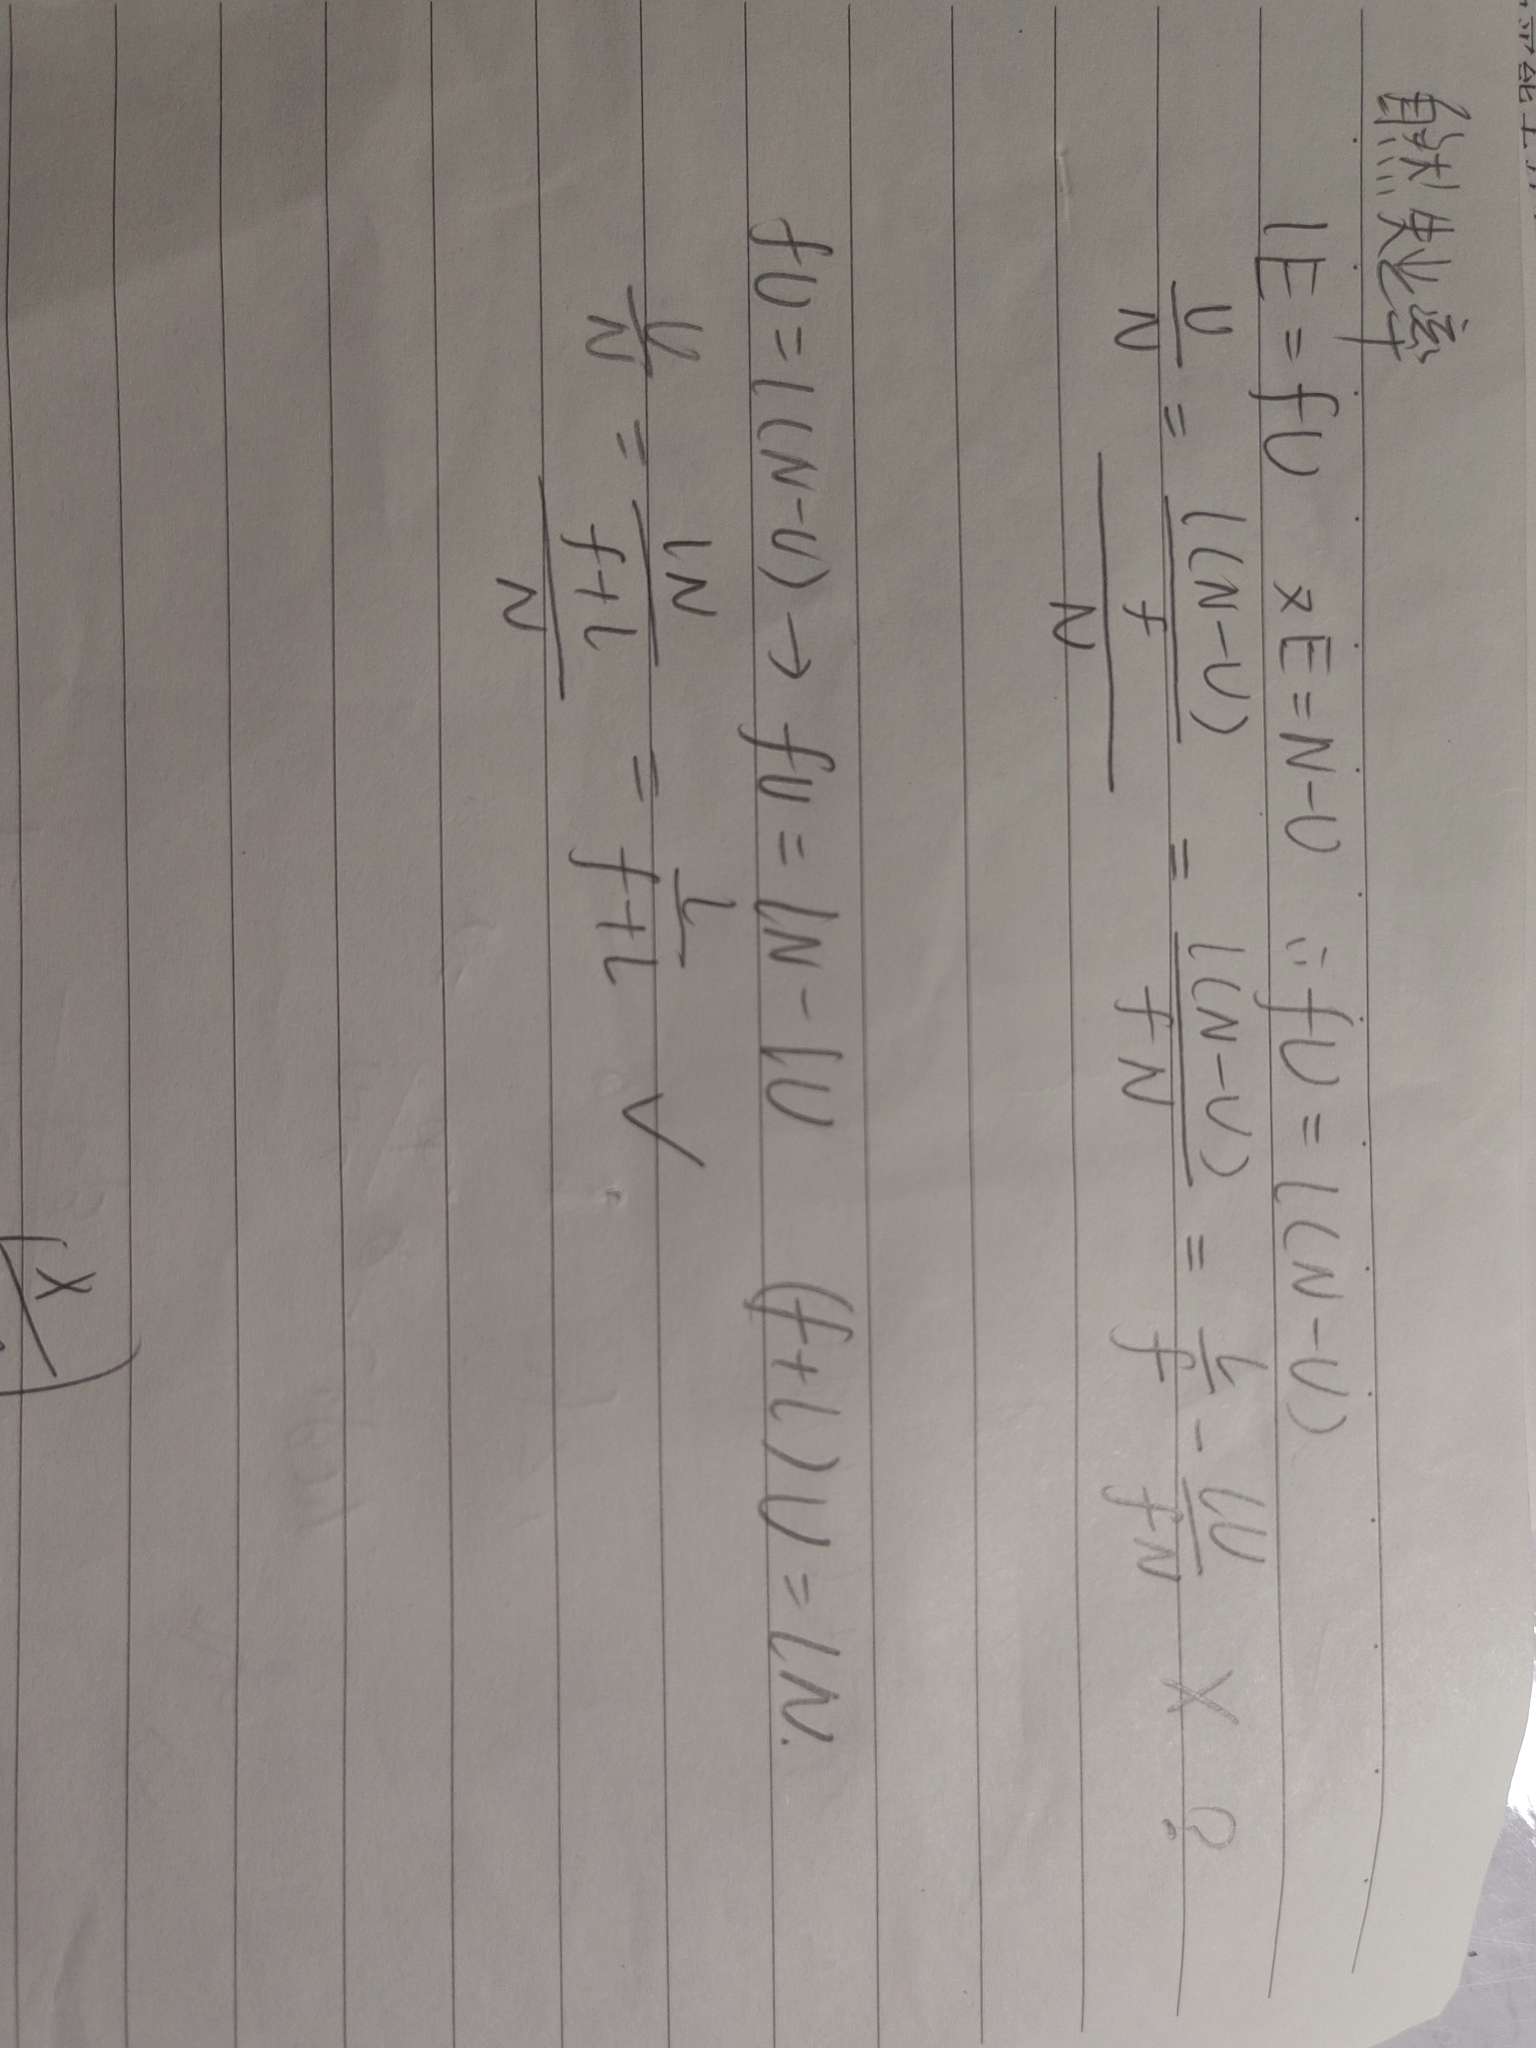 自然失业率
lE = fU   × E = N-U   ∴ fU = l(N-U)
U/N = (l(N-U)/f)/N = l(N-U)/fN = l/f - lU/fN   X ?
fU = l(N-U) → fU = lN - lU   (f+l)U = lN.
U/N = (lN/(f+l))/N = l/(f+l)   √